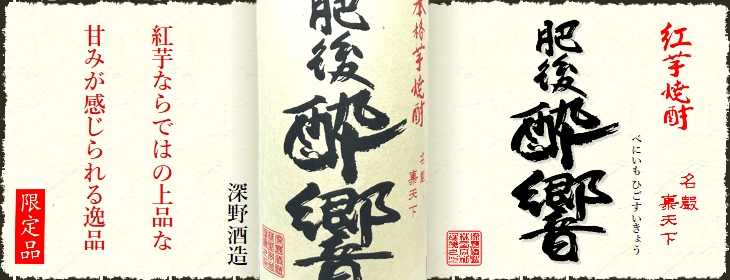 紅芋焼酎
名嚴
菓天下
肥後
酔響
べにいも ひごすいきょう
本格芋焼酎
名嚴
菓天下
肥後
酔響
深野酒造
紅芋ならではの上品な
甘みが感じられる逸品
限定品